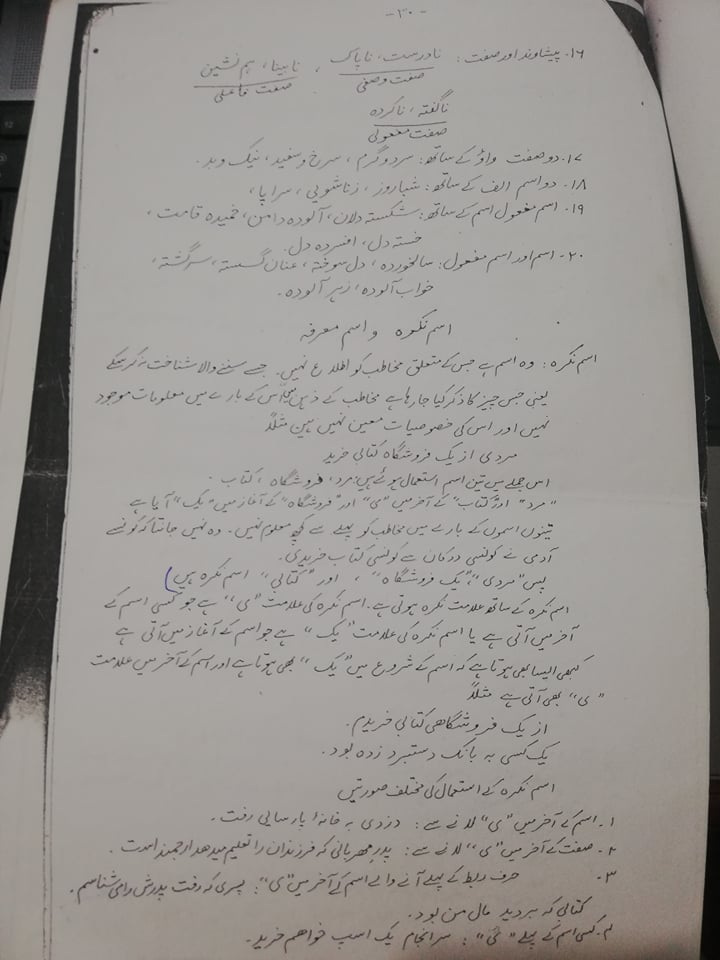 -۳۰-
۱۶۔ پیشاوند اور صفت: نادرست، ناپاک ، نابینا، ہم نشین
صفت وصفی صفت فاعلی
ناگفتہ، ناکردہ
صفت مفعولی
۱۷۔ دو صفت واؤ کے ساتھ: سرد و گرم، سرخ و سفید، نیک و بد۔
۱۸۔ دو اسم الف کے ساتھ: شباروز، زناشویی، سراپا،
۱۹۔ اسم مفعول اسم کے ساتھ: شکستہ دلان، آلودہ دامن، خمیدہ قامت،
خستہ دل، افسردہ دل۔
۲۰۔ اسم اور اسم مفعول: سالخوردہ، دل سوختہ، عنان گسستہ، سرگشتہ،
خواب آلودہ، زہر آلودہ۔
اسم نکرہ و اسم معرفہ
اسم نکرہ: وہ اسم ہے جس کے متعلق مخاطب کو اطلاع نہیں۔ جسے سننے والا شناخت نہ کر سکے
یعنی جس چیز کا ذکر کیا جا رہا ہے مخاطب کے ذہن میں اس کے بارے میں معلومات موجود
نہیں اور اس کی خصوصیات معین نہیں ہین مثلاً
مردی از یک فروشگاہ کتابی خرید
اس جملے میں تین اسم استعمال ہوئے ہیں: مرد، فروشگاہ، کتاب۔
"مرد" اور "کتاب" کے آخر میں "ی" اور "فروشگاہ" کے آغاز میں "یک" آیا ہے
تینوں اسموں کے بارے میں مخاطب کو پہلے سے کچھ معلوم نہیں۔ وہ نہیں جانتا کہ کونسے
آدمی نے کونسی دوکان سے کونسی کتاب خریدی۔
پس "مردی"، "یک فروشگاہ"، اور "کتابی" اسم نکرہ ہیں)
اسم نکرہ کے ساتھ علامت نکرہ ہوتی ہے۔ اسم نکرہ کی علامت "ی" ہے جو کسی اسم کے
آخر میں آتی ہے یا اسم نکرہ کی علامت "یک" ہے جو اسم کے آغاز میں آتی ہے
کبھی ایسا بھی ہوتا ہے کہ اسم کے شروع میں "یک" بھی ہوتا ہے اور اسم کے آخر میں علامت
"ی" بھی آتی ہے مثلاً
از یک فروشگاھی کتابی خریدم۔
یک کسی بہ بانک دستبرد زدہ بود۔
اسم نکرہ کے استعمال کی مختلف صورتیں
۱۔ اسم کے آخر میں "ی" لانے سے: دزدی بہ خانۂ پارسایی رفت۔
۲۔ صفت کے آخر میں "ی" لانے سے: پدر مھربانی کہ فرزندان را تعلیم میدھد ارجمند است۔
۳۔ حرف ربط کے پہلے آنے والے اسم کے آخر میں "ی": پسری کہ رفت پدرش را می شناسم۔
کتابی کہ بردید مال من بود۔
۴۔ کسی اسم کے پہلے : سرانجام یک اسب خواھم خرید۔